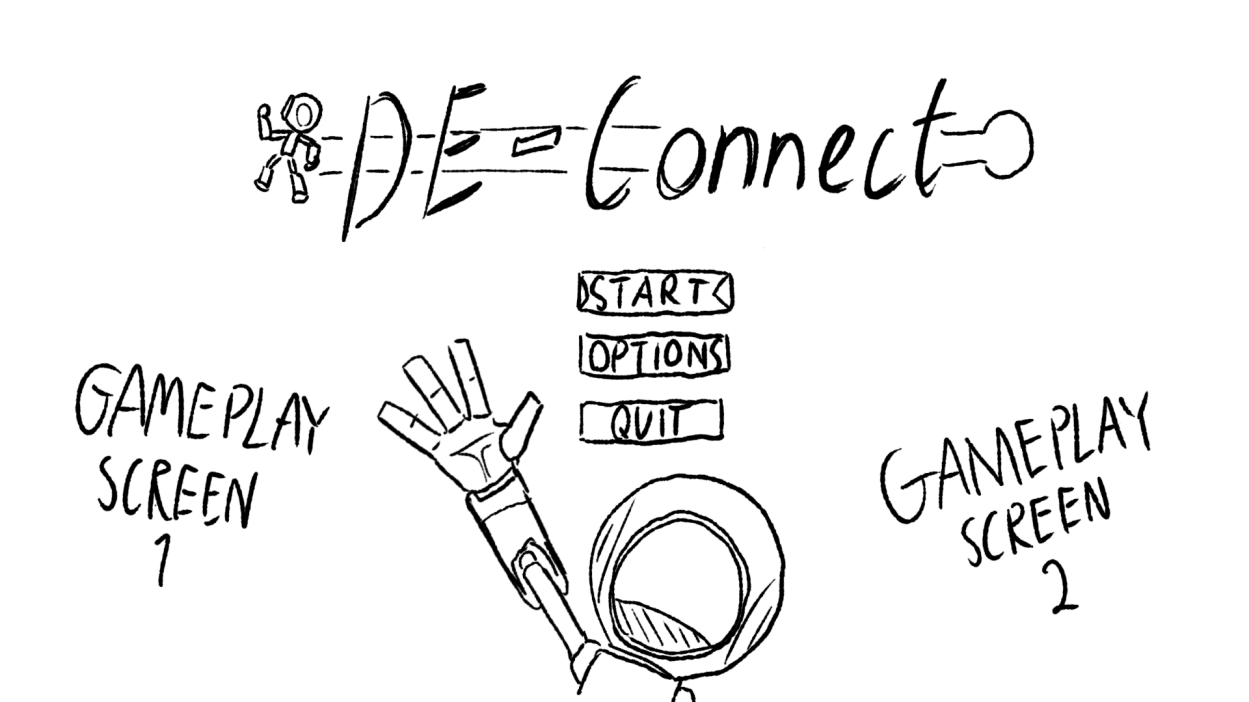 DE-Connect
START
OPTIONS
QUIT
GAMEPLAY
SCREEN
1
GAMEPLAY
SCREEN
2